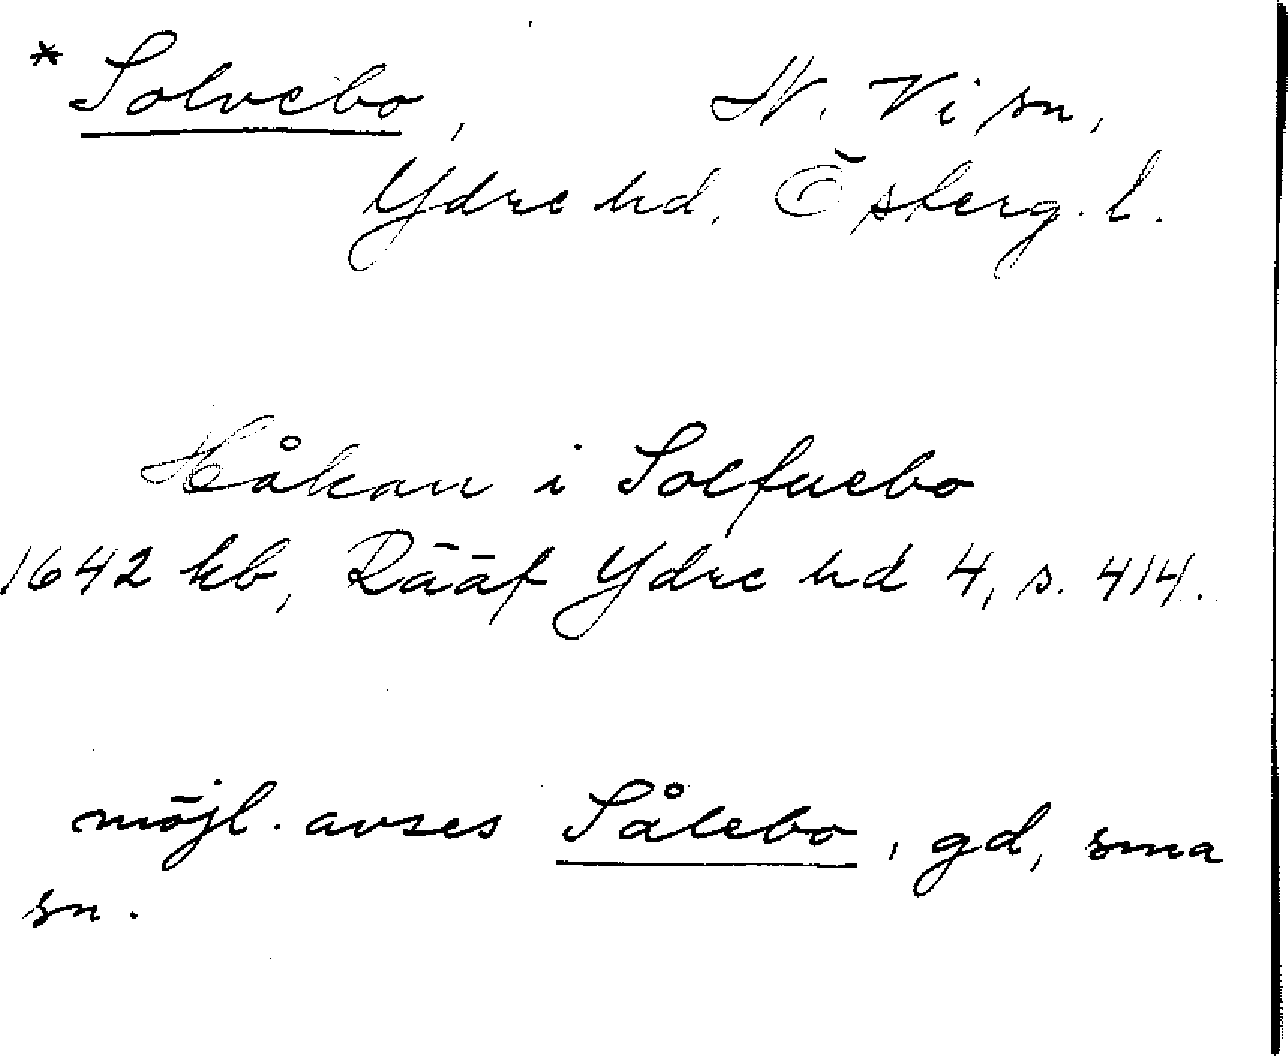 * Solvebo, N. Vi sn,
Ydre hd. Österg. l.
Håkan i Solfuebo
1642 kb, Rääf Ydre hd 4, s. 414.
möjl. avses Sålebo, gd, sma
sn.